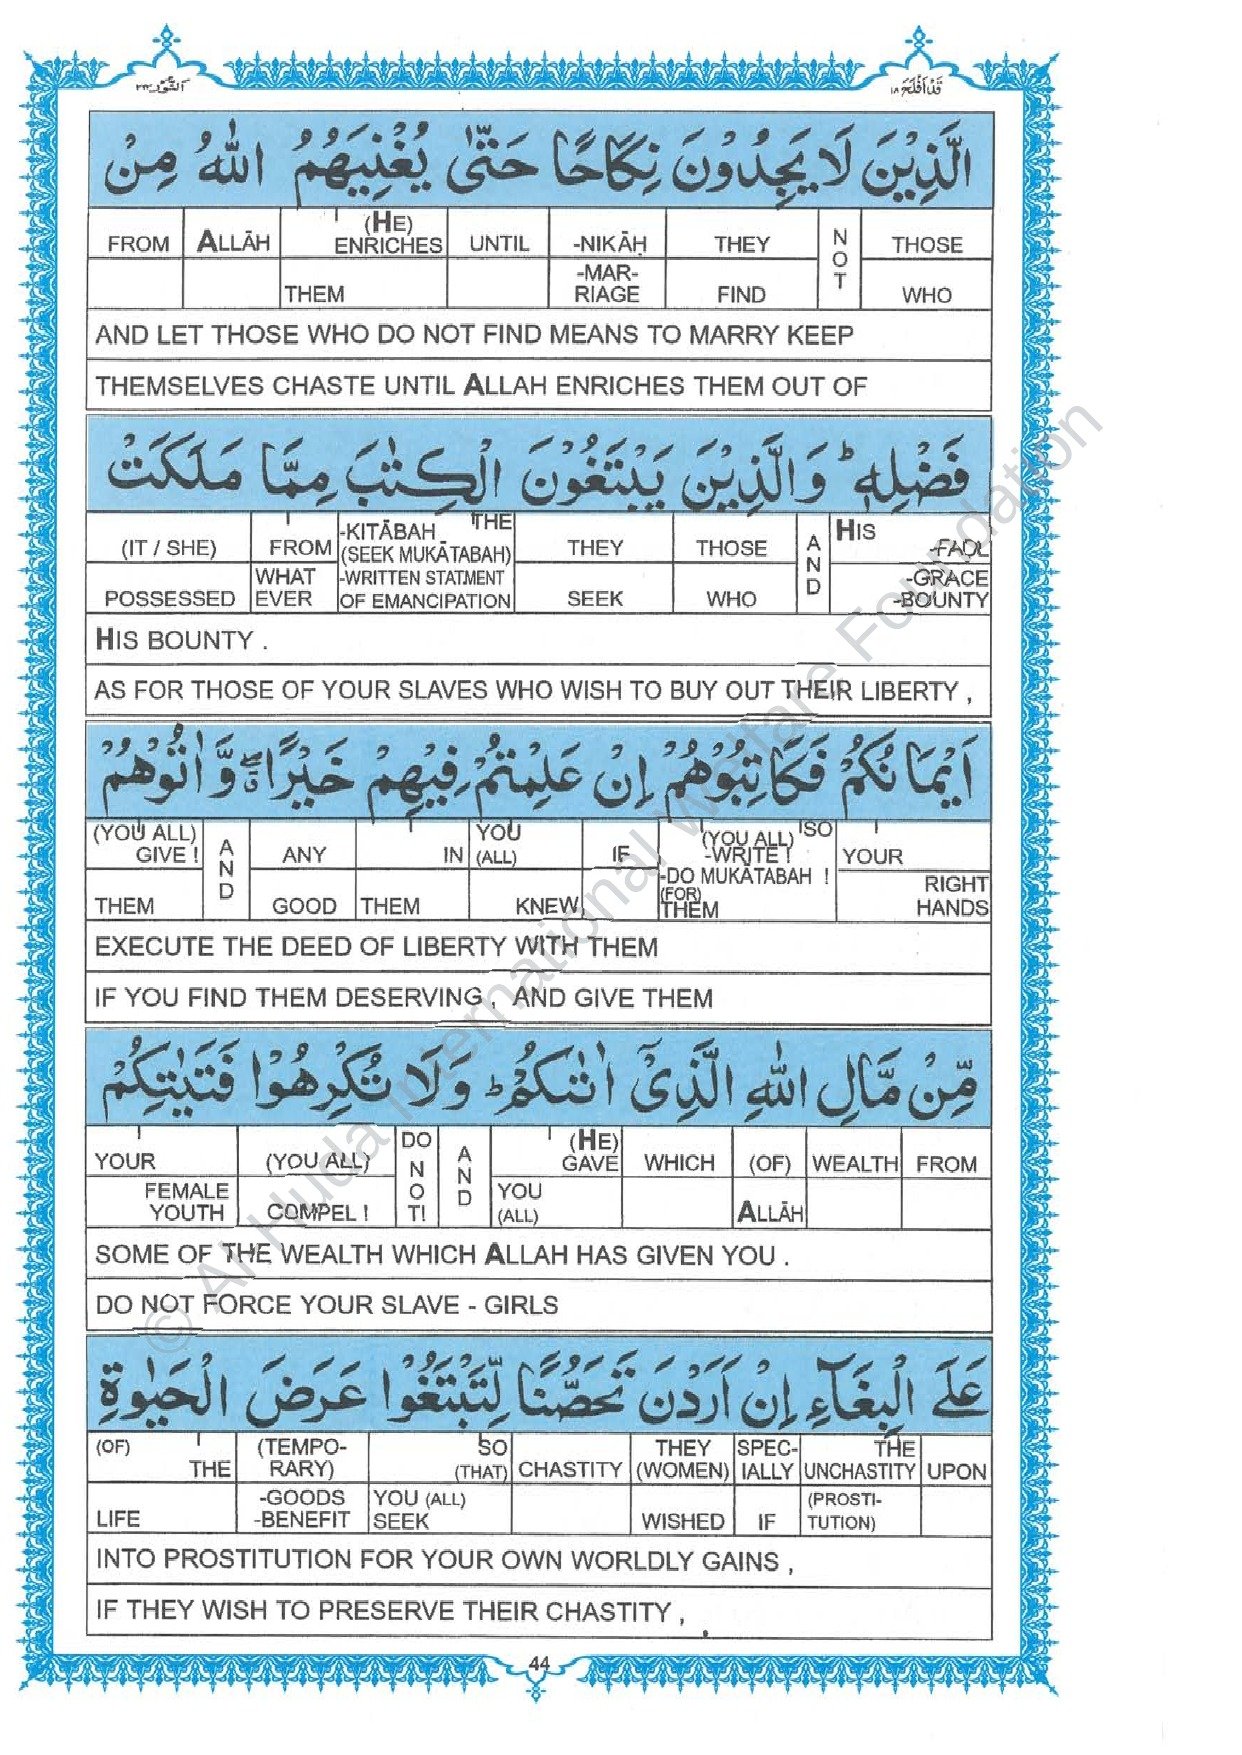 قَدْ اَفْلَحَ ١٨
اَلنُّوْر ٢٤
الَّذِيْنَ لَا يَجِدُوْنَ نِكَاحًا حَتّٰى يُغْنِيَهُمُ اللّٰهُ مِنْ
FROM ALLĀH (HE) ENRICHES UNTIL -NIKĀḤ THEY NOT THOSE
THEM -MAR-RIAGE FIND WHO
AND LET THOSE WHO DO NOT FIND MEANS TO MARRY KEEP
THEMSELVES CHASTE UNTIL ALLAH ENRICHES THEM OUT OF
فَضْلِهٖ ؕ وَالَّذِيْنَ يَبْتَغُوْنَ الْكِتٰبَ مِمَّا مَلَكَتْ
(IT / SHE) FROM -KITĀBAH THE (SEEK MUKĀTABAH) THEY THOSE AND HIS -FAḌL
POSSESSED WHAT EVER -WRITTEN STATMENT OF EMANCIPATION SEEK WHO -GRACE -BOUNTY
HIS BOUNTY .
AS FOR THOSE OF YOUR SLAVES WHO WISH TO BUY OUT THEIR LIBERTY ,
اَيْمَانُكُمْ فَكَاتِبُوْهُمْ اِنْ عَلِمْتُمْ فِيْهِمْ خَيْرًا ۖ وَّاٰتُوْهُمْ
(YOU ALL) GIVE ! AND ANY IN YOU (ALL) IF (YOU ALL) SO -WRITE ! YOUR
THEM GOOD THEM KNEW, -DO MUKĀTABAH ! (FOR) THEM RIGHT HANDS
EXECUTE THE DEED OF LIBERTY WITH THEM
IF YOU FIND THEM DESERVING , AND GIVE THEM
مِّنْ مَّالِ اللّٰهِ الَّذِيْۤ اٰتٰىكُمْ ؕ وَلَا تُكْرِهُوْا فَتَيٰتِكُمْ
YOUR (YOU ALL) DO NOT! AND (HE) GAVE WHICH (OF) WEALTH FROM
FEMALE YOUTH COMPEL ! YOU (ALL) ALLĀH
SOME OF THE WEALTH WHICH ALLAH HAS GIVEN YOU .
DO NOT FORCE YOUR SLAVE - GIRLS
عَلَى الْبِغَآءِ اِنْ اَرَدْنَ تَحَصُّنًا لِّتَبْتَغُوْا عَرَضَ الْحَيٰوةِ
(OF) THE (TEMPO-RARY) SO (THAT) CHASTITY THEY (WOMEN) SPEC-IALLY THE UNCHASTITY UPON
LIFE -GOODS -BENEFIT YOU (ALL) SEEK WISHED IF (PROSTI-TUTION)
INTO PROSTITUTION FOR YOUR OWN WORLDLY GAINS ,
IF THEY WISH TO PRESERVE THEIR CHASTITY ,
44
© Al Huda International Welfare Foundation